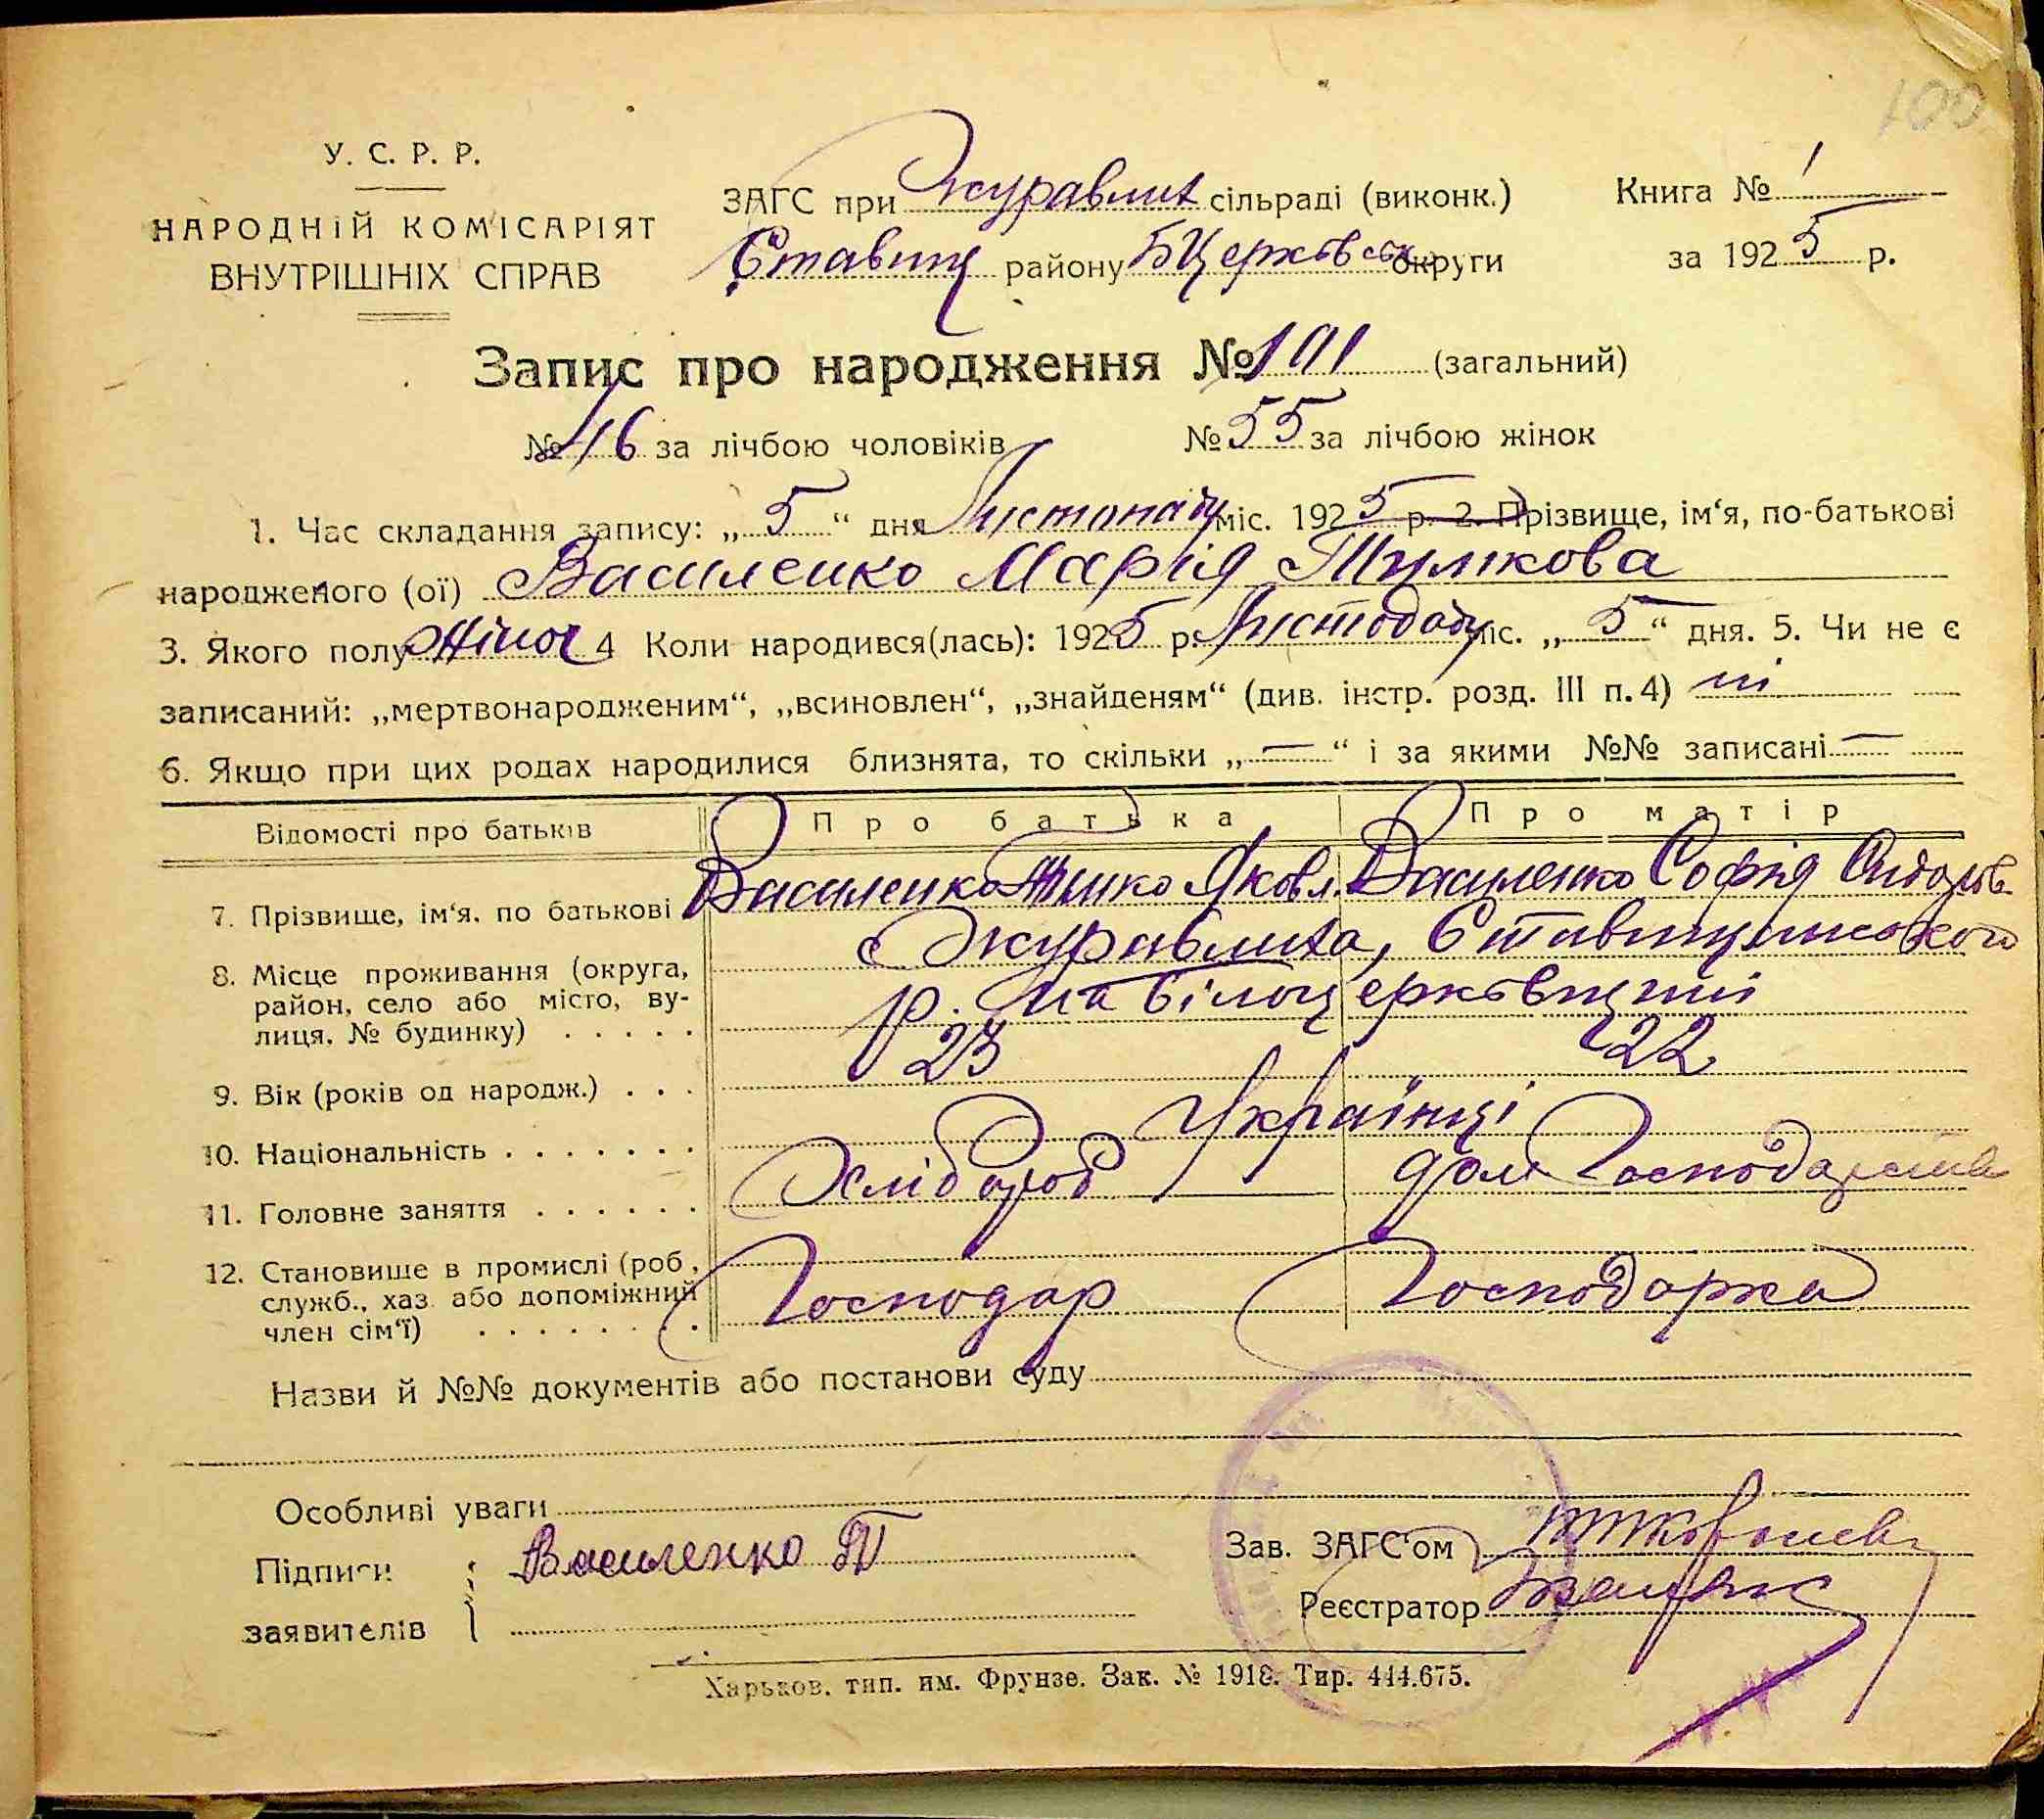 100
У. С. Р. Р.
НАРОДНІЙ КОМІСАРІЯТ
ВНУТРІШНІХ СПРАВ
ЗАГС при Журавлих сільраді (виконк.)
Ставищ району БЦерковськ округи
Книга № 1
за 1925 р.
Запис про народження № 101 (загальний)
№ 46 за лічбою чоловіків № 55 за лічбою жінок
1. Час складання запису: „ 5 “ дня Листопаду міс. 1925 р. 2. Прізвище, ім‘я, по-батькові
народженого (ої) Василенко Марія Тимкова
3. Якого полу Жіноч 4 Коли народився(лась): 1925 р. Листопаду міс. „ 5 “ дня. 5. Чи не є
записаний: „мертвонародженим“, „всиновлен“, „знайденям“ (див. інстр. розд. III п. 4) ні
6. Якщо при цих родах народилися близнята, то скільки „ — “ і за якими №№ записані —
Відомості про батьків Про батька Про матір
7. Прізвище, ім‘я, по батькові Василенко Тимко Яковл. Василенко Софія Сидоров.
8. Місце проживання (округа, район, село або місто, вулиця, № будинку) . . . . .
с Журавлиха, Ставищанського
р. на Білоцерківщині
9. Вік (років од народж.) . . . 23 22
10. Національність . . . . . . . Українці
11. Головне заняття . . . . . . Хлібороб дом Господарство
12. Становище в промислі (роб., служб., хаз. або допоміжний член сім‘ї) . . . . . . . . Господар Господарка
Назви й №№ документів або постанови суду
Особливі уваги
Підписи заявителів Василенко Т
Зав. ЗАГС‘ом
Реєстратор
Харьков. тип. им. Фрунзе. Зак. № 1918. Тир. 444.675.